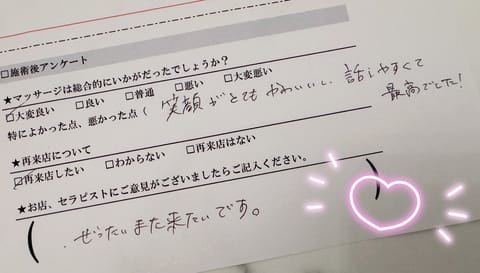 □施術後アンケート
★マッサージは総合的にいかがだったでしょうか？
☑大変良い □良い □普通 □悪い □大変悪い
特によかった点、悪かった点( 笑顔がとてもかわいいし、話しやすくて
最高でした!
★再来店について
☑再来店したい □わからない □再来店はない
★お店、セラピストにご意見がございましたらご記入ください。
( ぜったいまた来たいです。 )